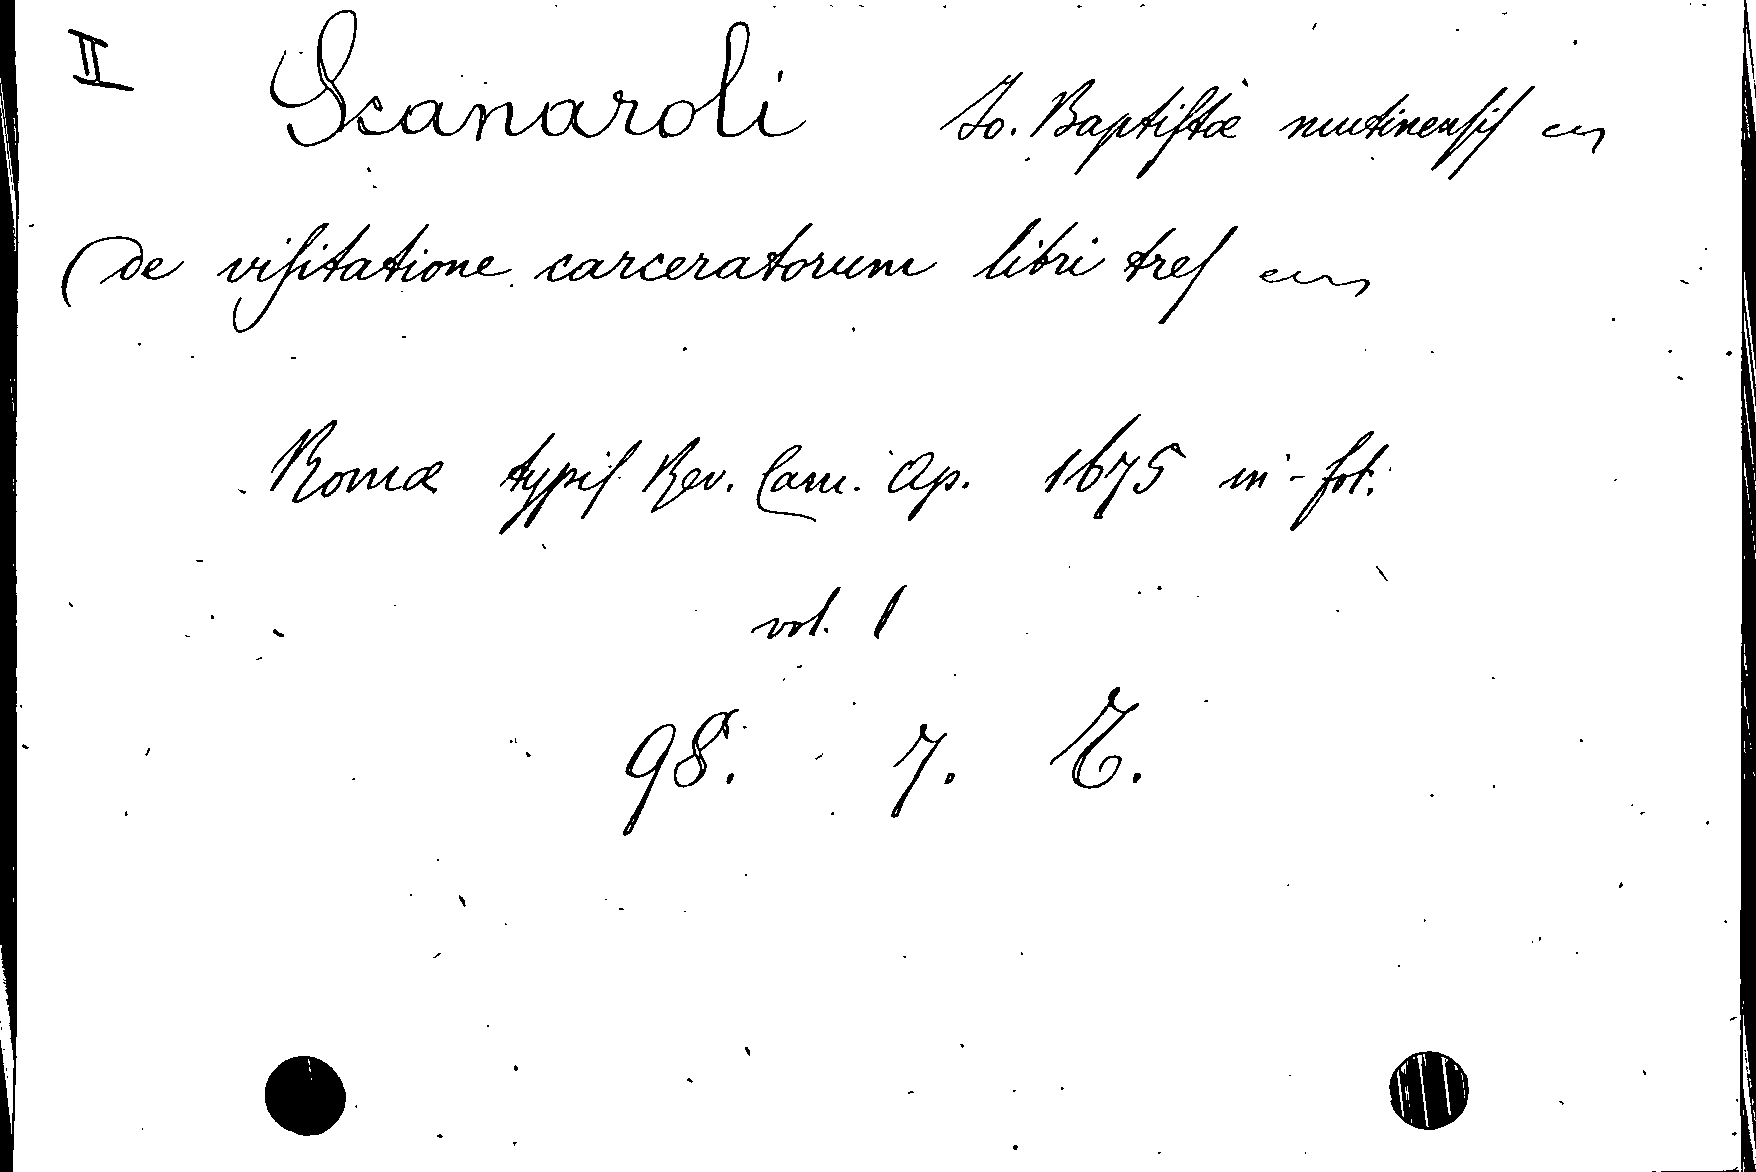 II Scanaroli Io. Baptiſtæ mutinenſis
De viſitatione carceratorum libri tres
Romæ typis Rev. Cam. Ap. 1675 in-fol.
vol. 1
98. 7. E.